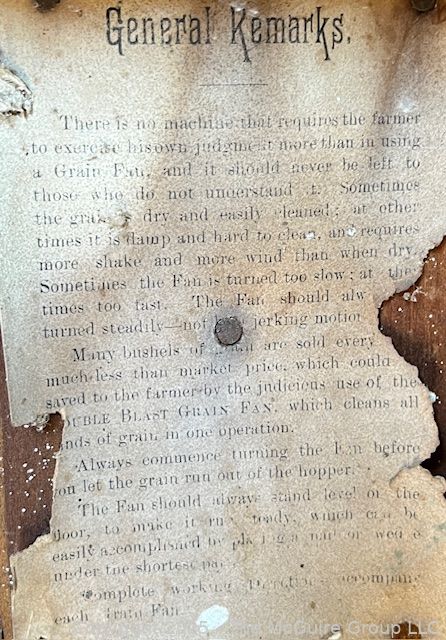 General Remarks.
There is no machine that requires the farmer
to exercise his own judgment more than in using
a Grain Fan, and it should never be left to
those who do not understand it. Sometimes
the grain is dry and easily cleaned; at other
times it is damp and hard to clean, and requires
more shake and more wind than when dry.
Sometimes the Fan is turned too slow; at the
times too fast. The Fan should alw
turned steadily—not jerking motion
Many bushels of are sold every
much less than market price, which could
saved to the farmer by the judicious use of the
OUBLE BLAST GRAIN FAN, which cleans all
nds of grain in one operation.
Always commence turning the Fan before
you let the grain run out of the hopper.
The Fan should always stand level on the
floor, to make it run steady, which can be
easily accomplished by placing a nail or wedge
under the shortest
Complete working Directions accompany
each Grain Fan.
McGuire Group LLC